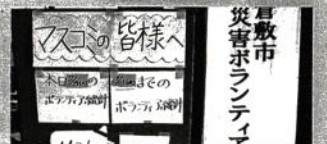 マスコミの皆様へ
本日の
ボランティア総計
までの
ボランティア総計
倉敷市
災害ボランティア